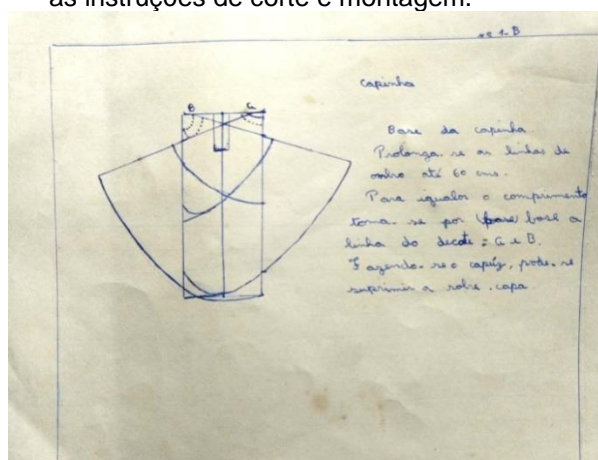 as instruções de corte e montagem.
nº 1-B
Capinha
B
G
Base da capinha.
Prolonga-se as linhas de
ombro até 60 cms.
Para igualar o comprimento
toma-se por (base) base a
linha do decote: G e B.
Fazendo-se o capúz, pode-se
suprimir a sobre-capa